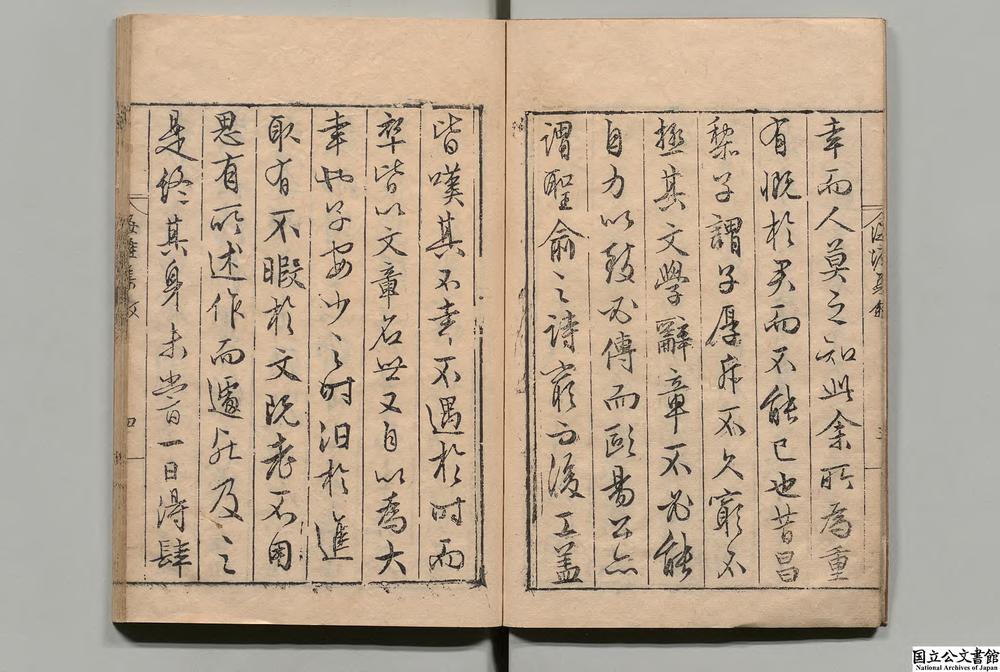 幸而人莫之知此余所為重
有慨於君而不能已也昔昌
黎子謂子厚斥不久窮不
極其文學辭章不必能
自力以致必傳而歐陽公亦
謂聖俞之詩窮而後工蓋
皆嘆其不幸不遇於時而
卒皆以文章名世又自以為大
幸也予安少之時汨於進
取有不暇於文既老不用
思有所述作而遽能及之
是終其身未嘗一日得肆
四
国立公文書館
National Archives of Japan